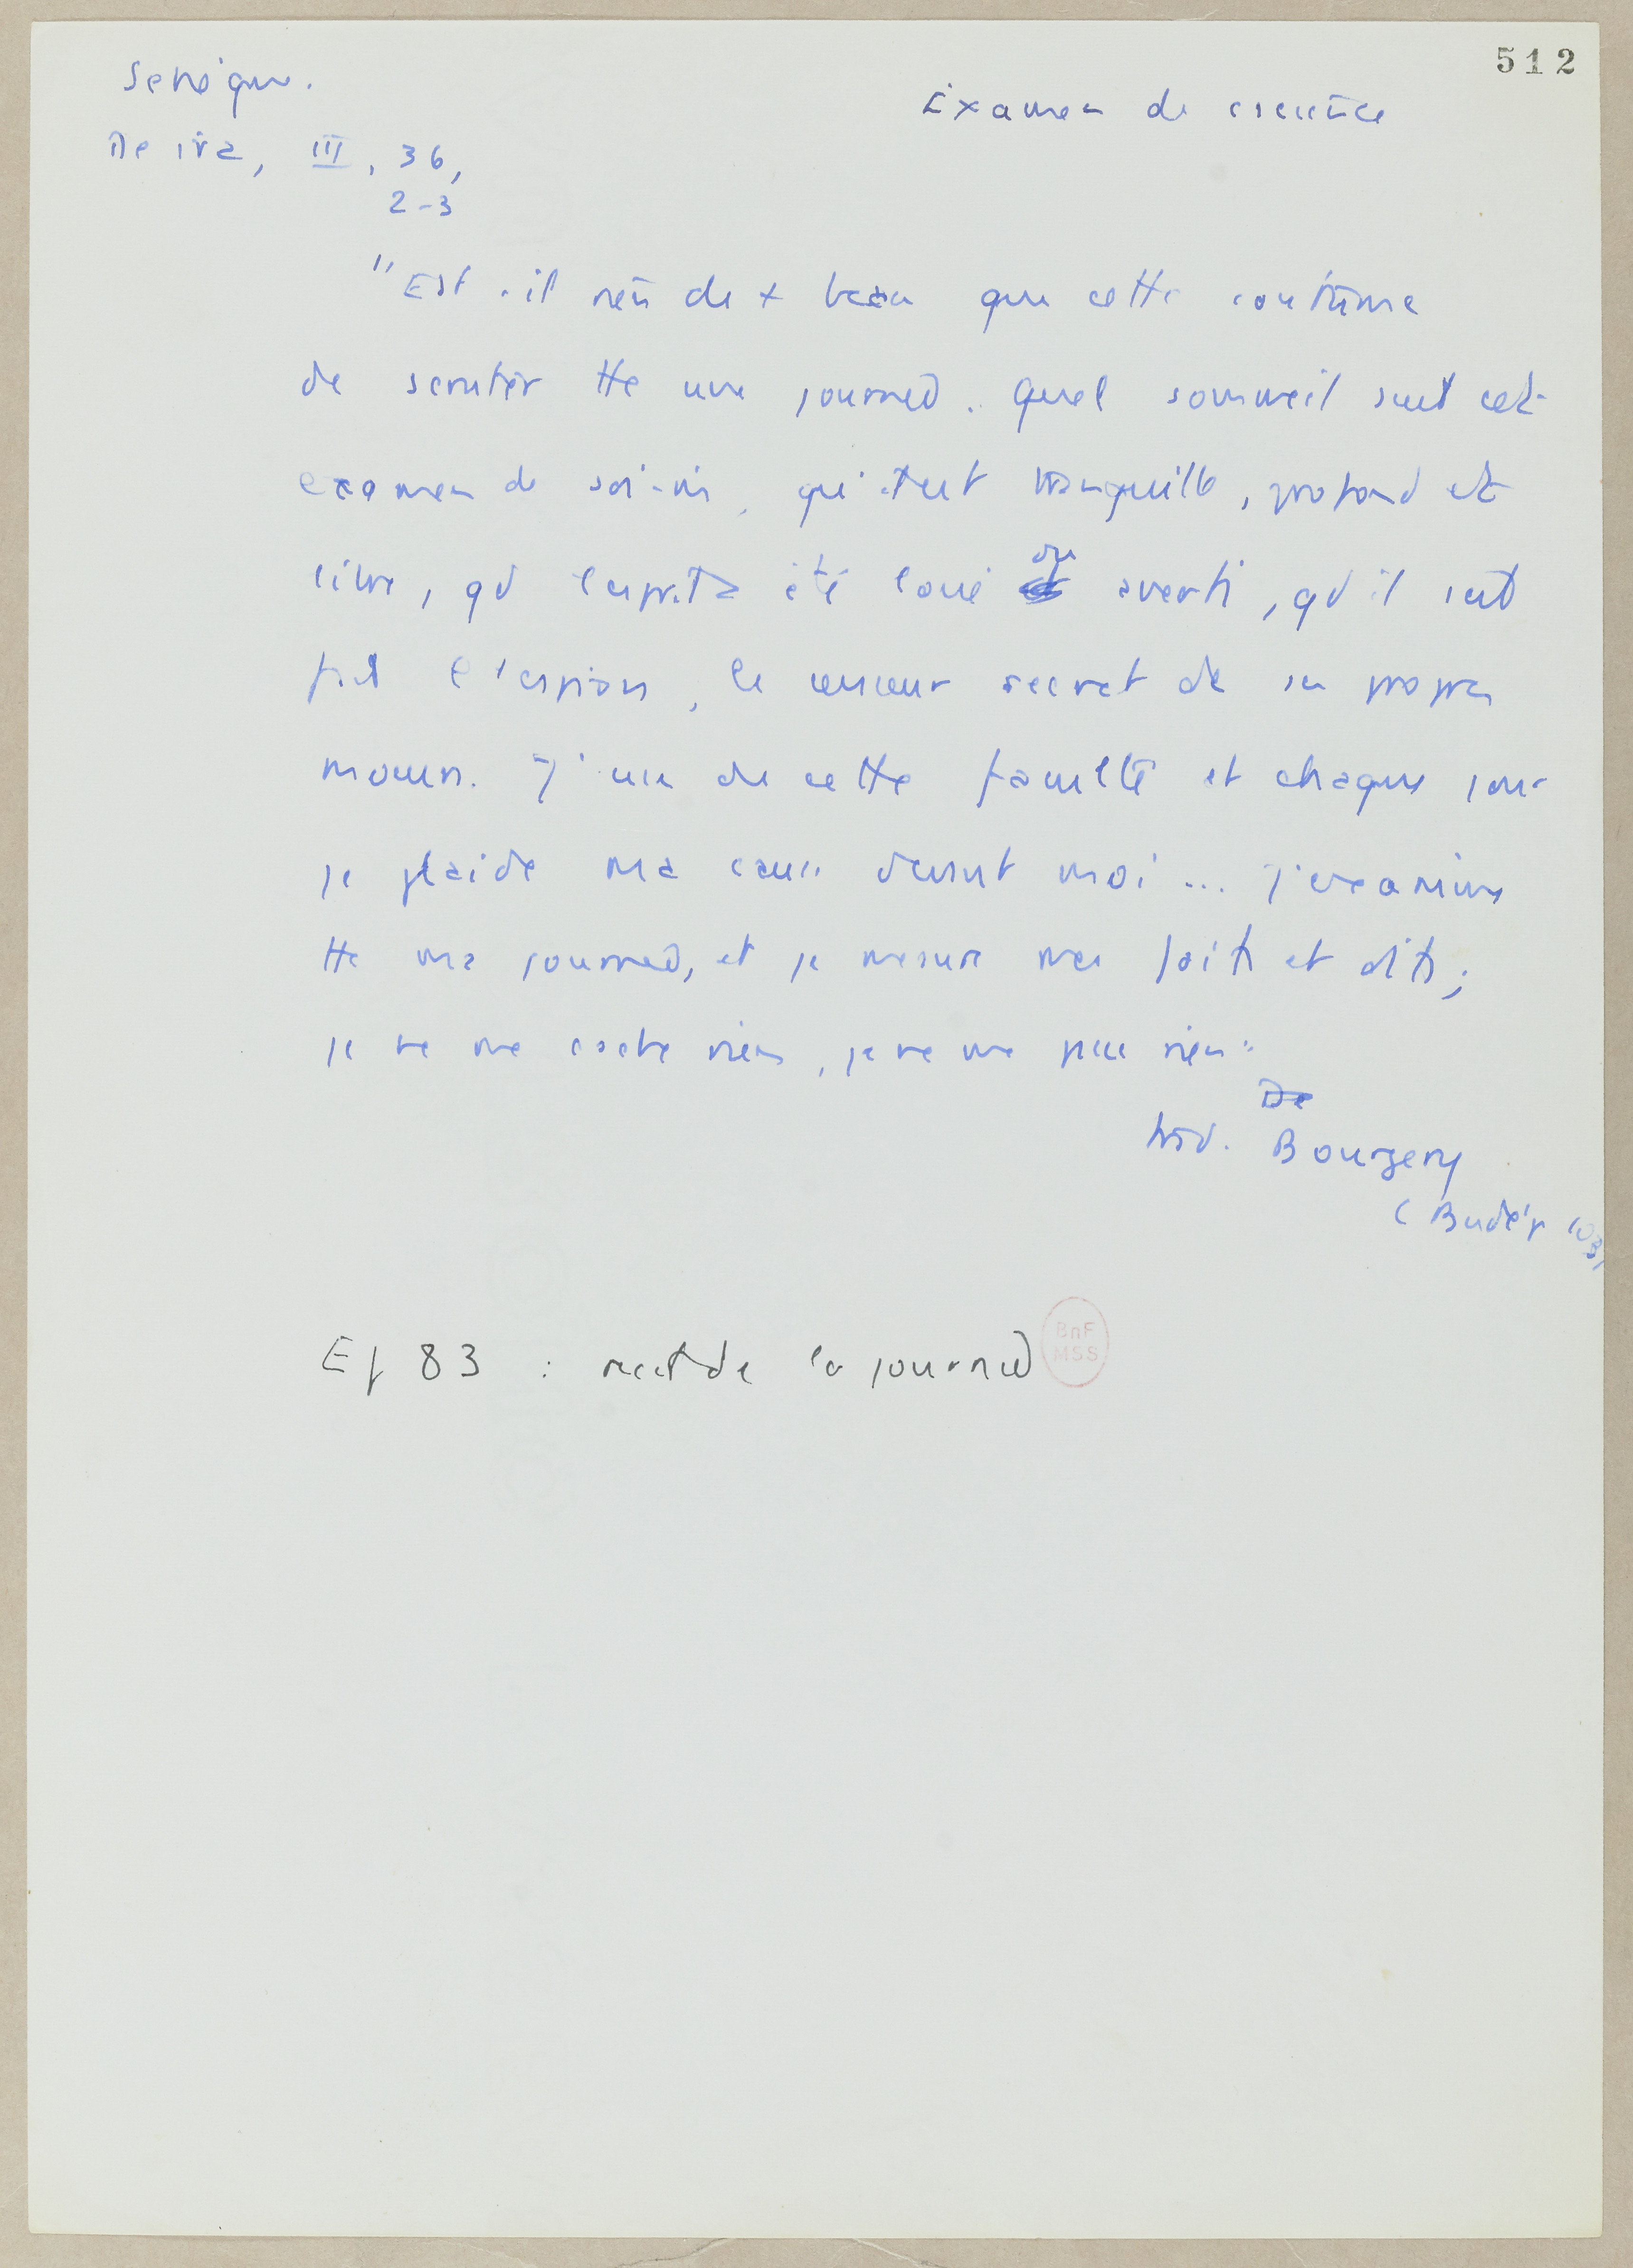 512
Sénèque.
Examen de cscience
De ira, III, 36,
2-3
"Est-il rien de + beau que cette coutume
de scruter tte une journée. Quel sommeil suit cet
examen de soi-m, qu'il est tranquille, profond et
libre, qd l'esprit a été loué ou averti, qd il s'est
fait l'espion, le censeur secret de ses propres
moeurs. J'use de cette faculté et chaque jour
je plaide ma cause devant moi... J'examine
tte ma journée, et je mesure mes faits et dits;
je ne me cache rien, je ne me passe rien"
De
trad. Bourgery
(Budé, p 103)
Ep 83 : récit de la journée
BnF
MSS